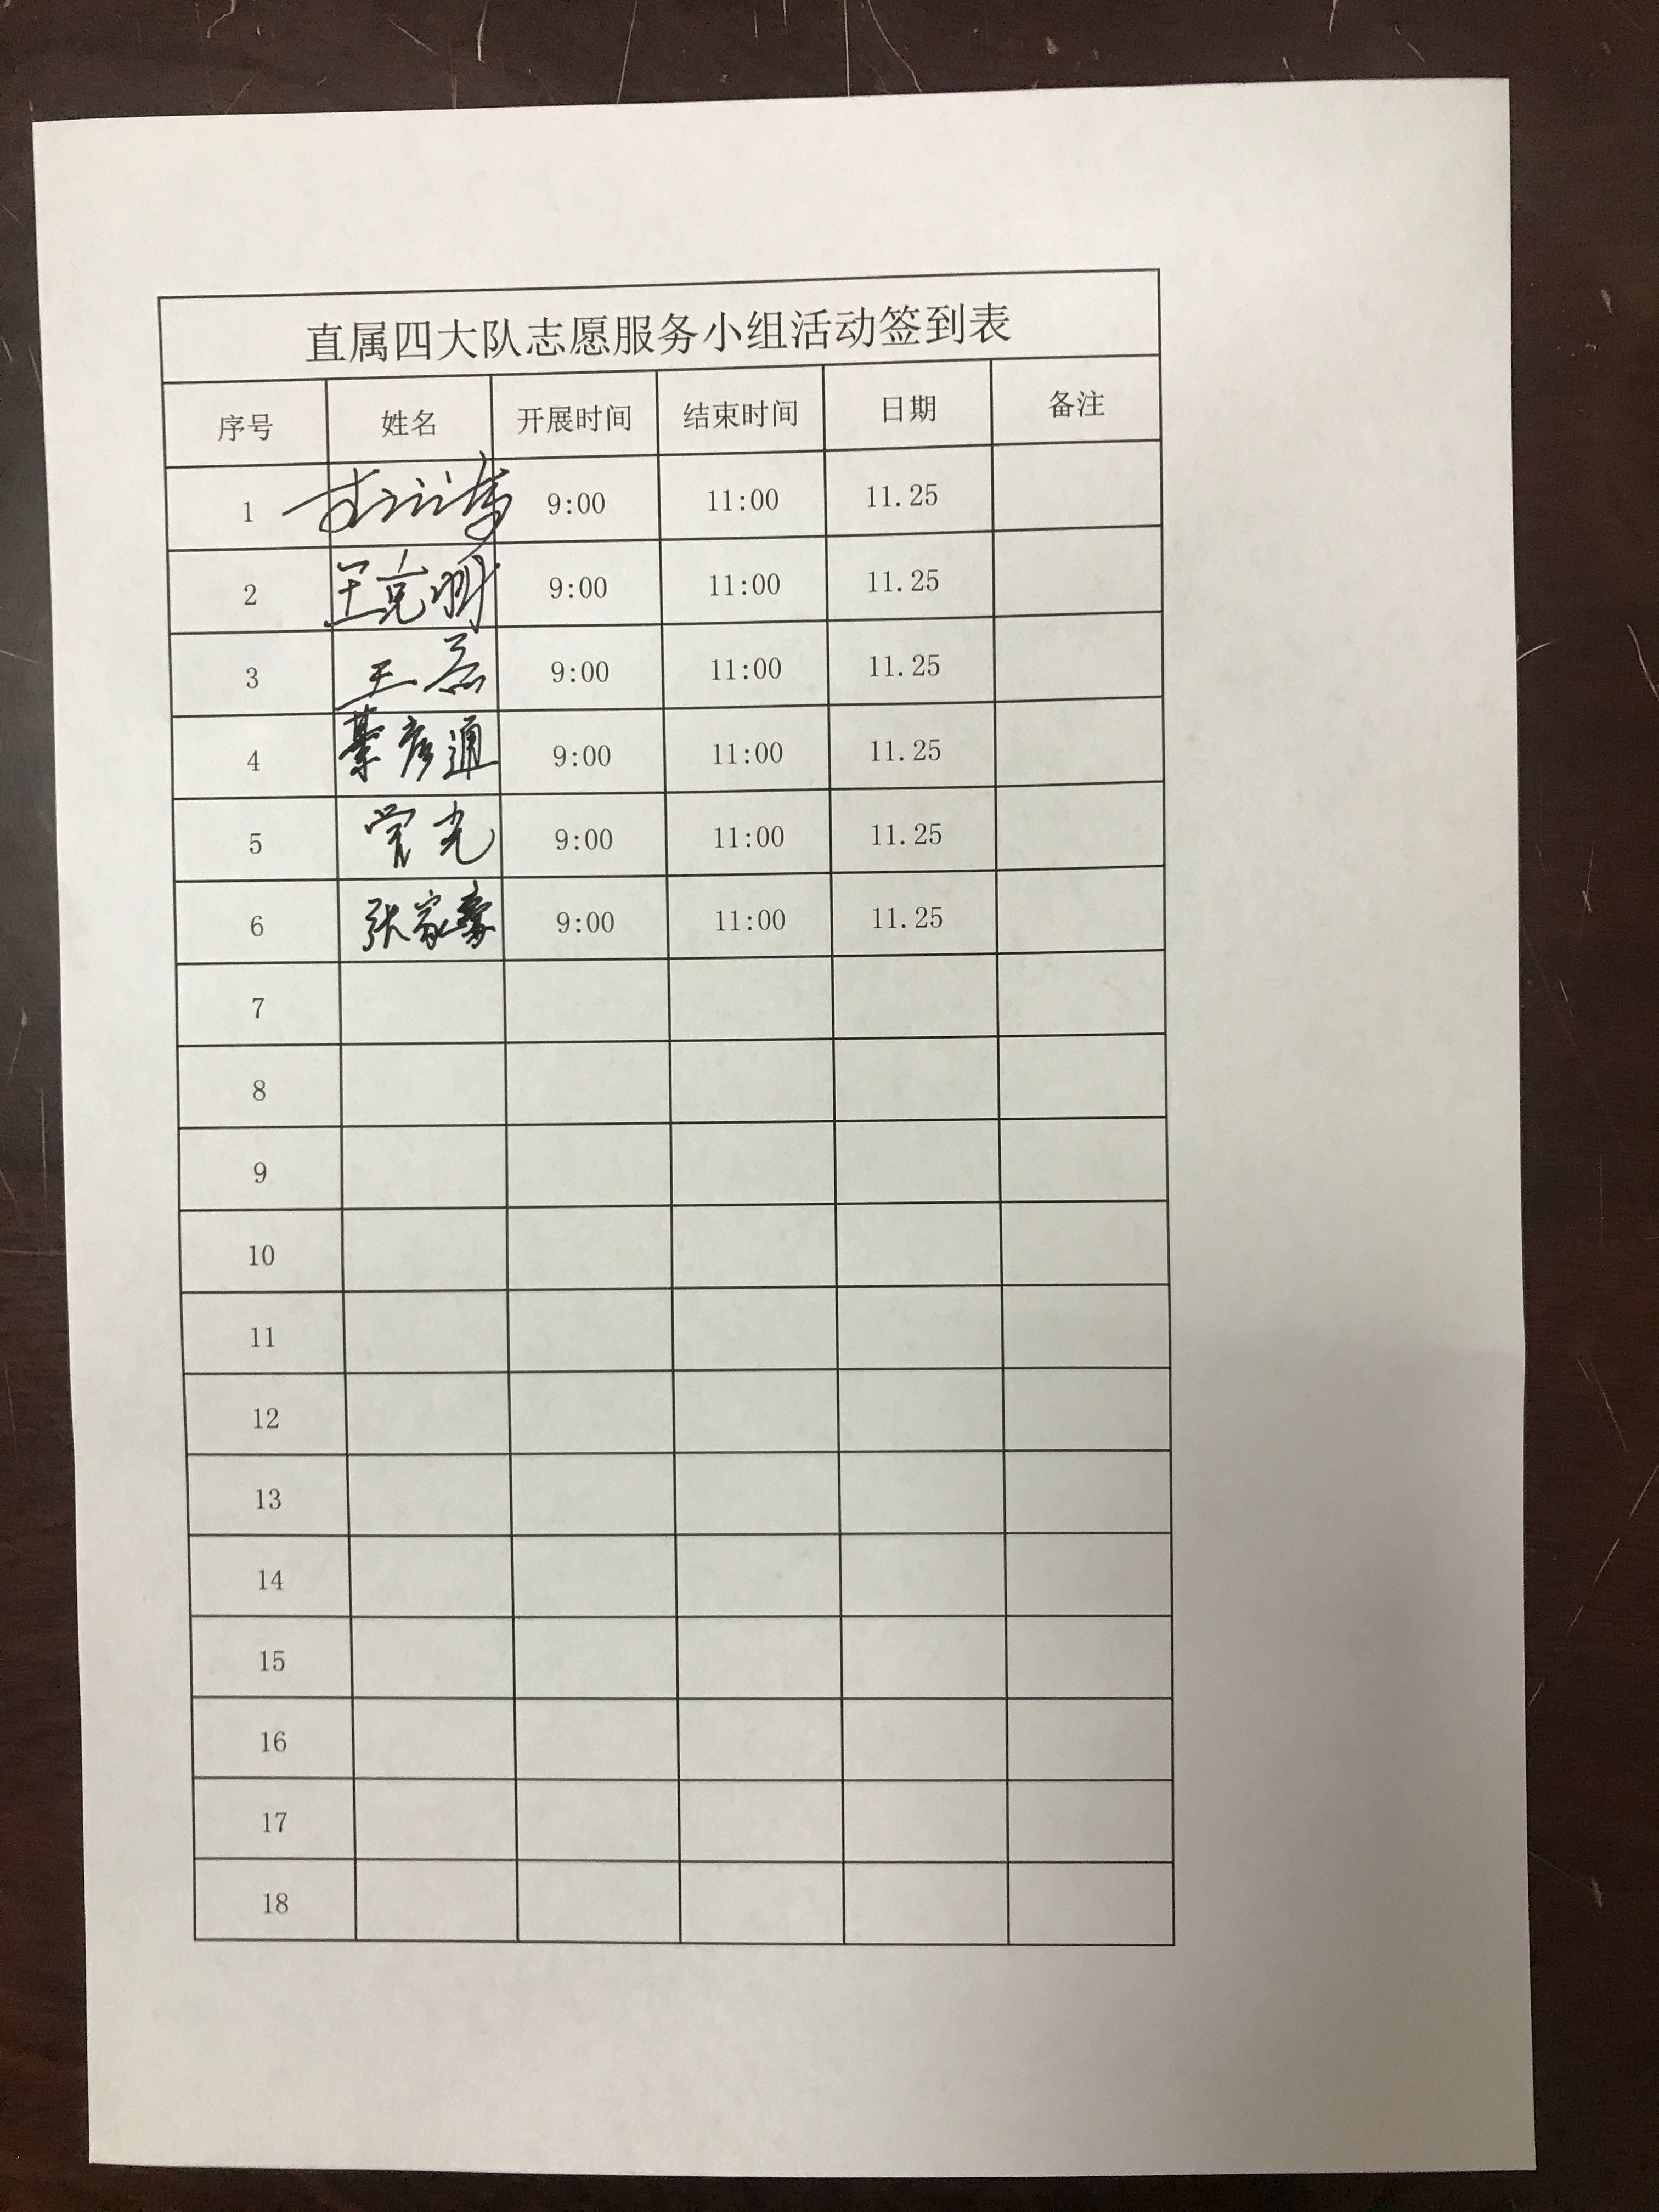 直属四大队志愿服务小组活动签到表
序号 姓名 开展时间 结束时间 日期 备注
1 9:00 11:00 11.25
2 王克明 9:00 11:00 11.25
3 王磊 9:00 11:00 11.25
4 綦彦通 9:00 11:00 11.25
5 管光 9:00 11:00 11.25
6 张家豪 9:00 11:00 11.25
7
8
9
10
11
12
13
14
15
16
17
18